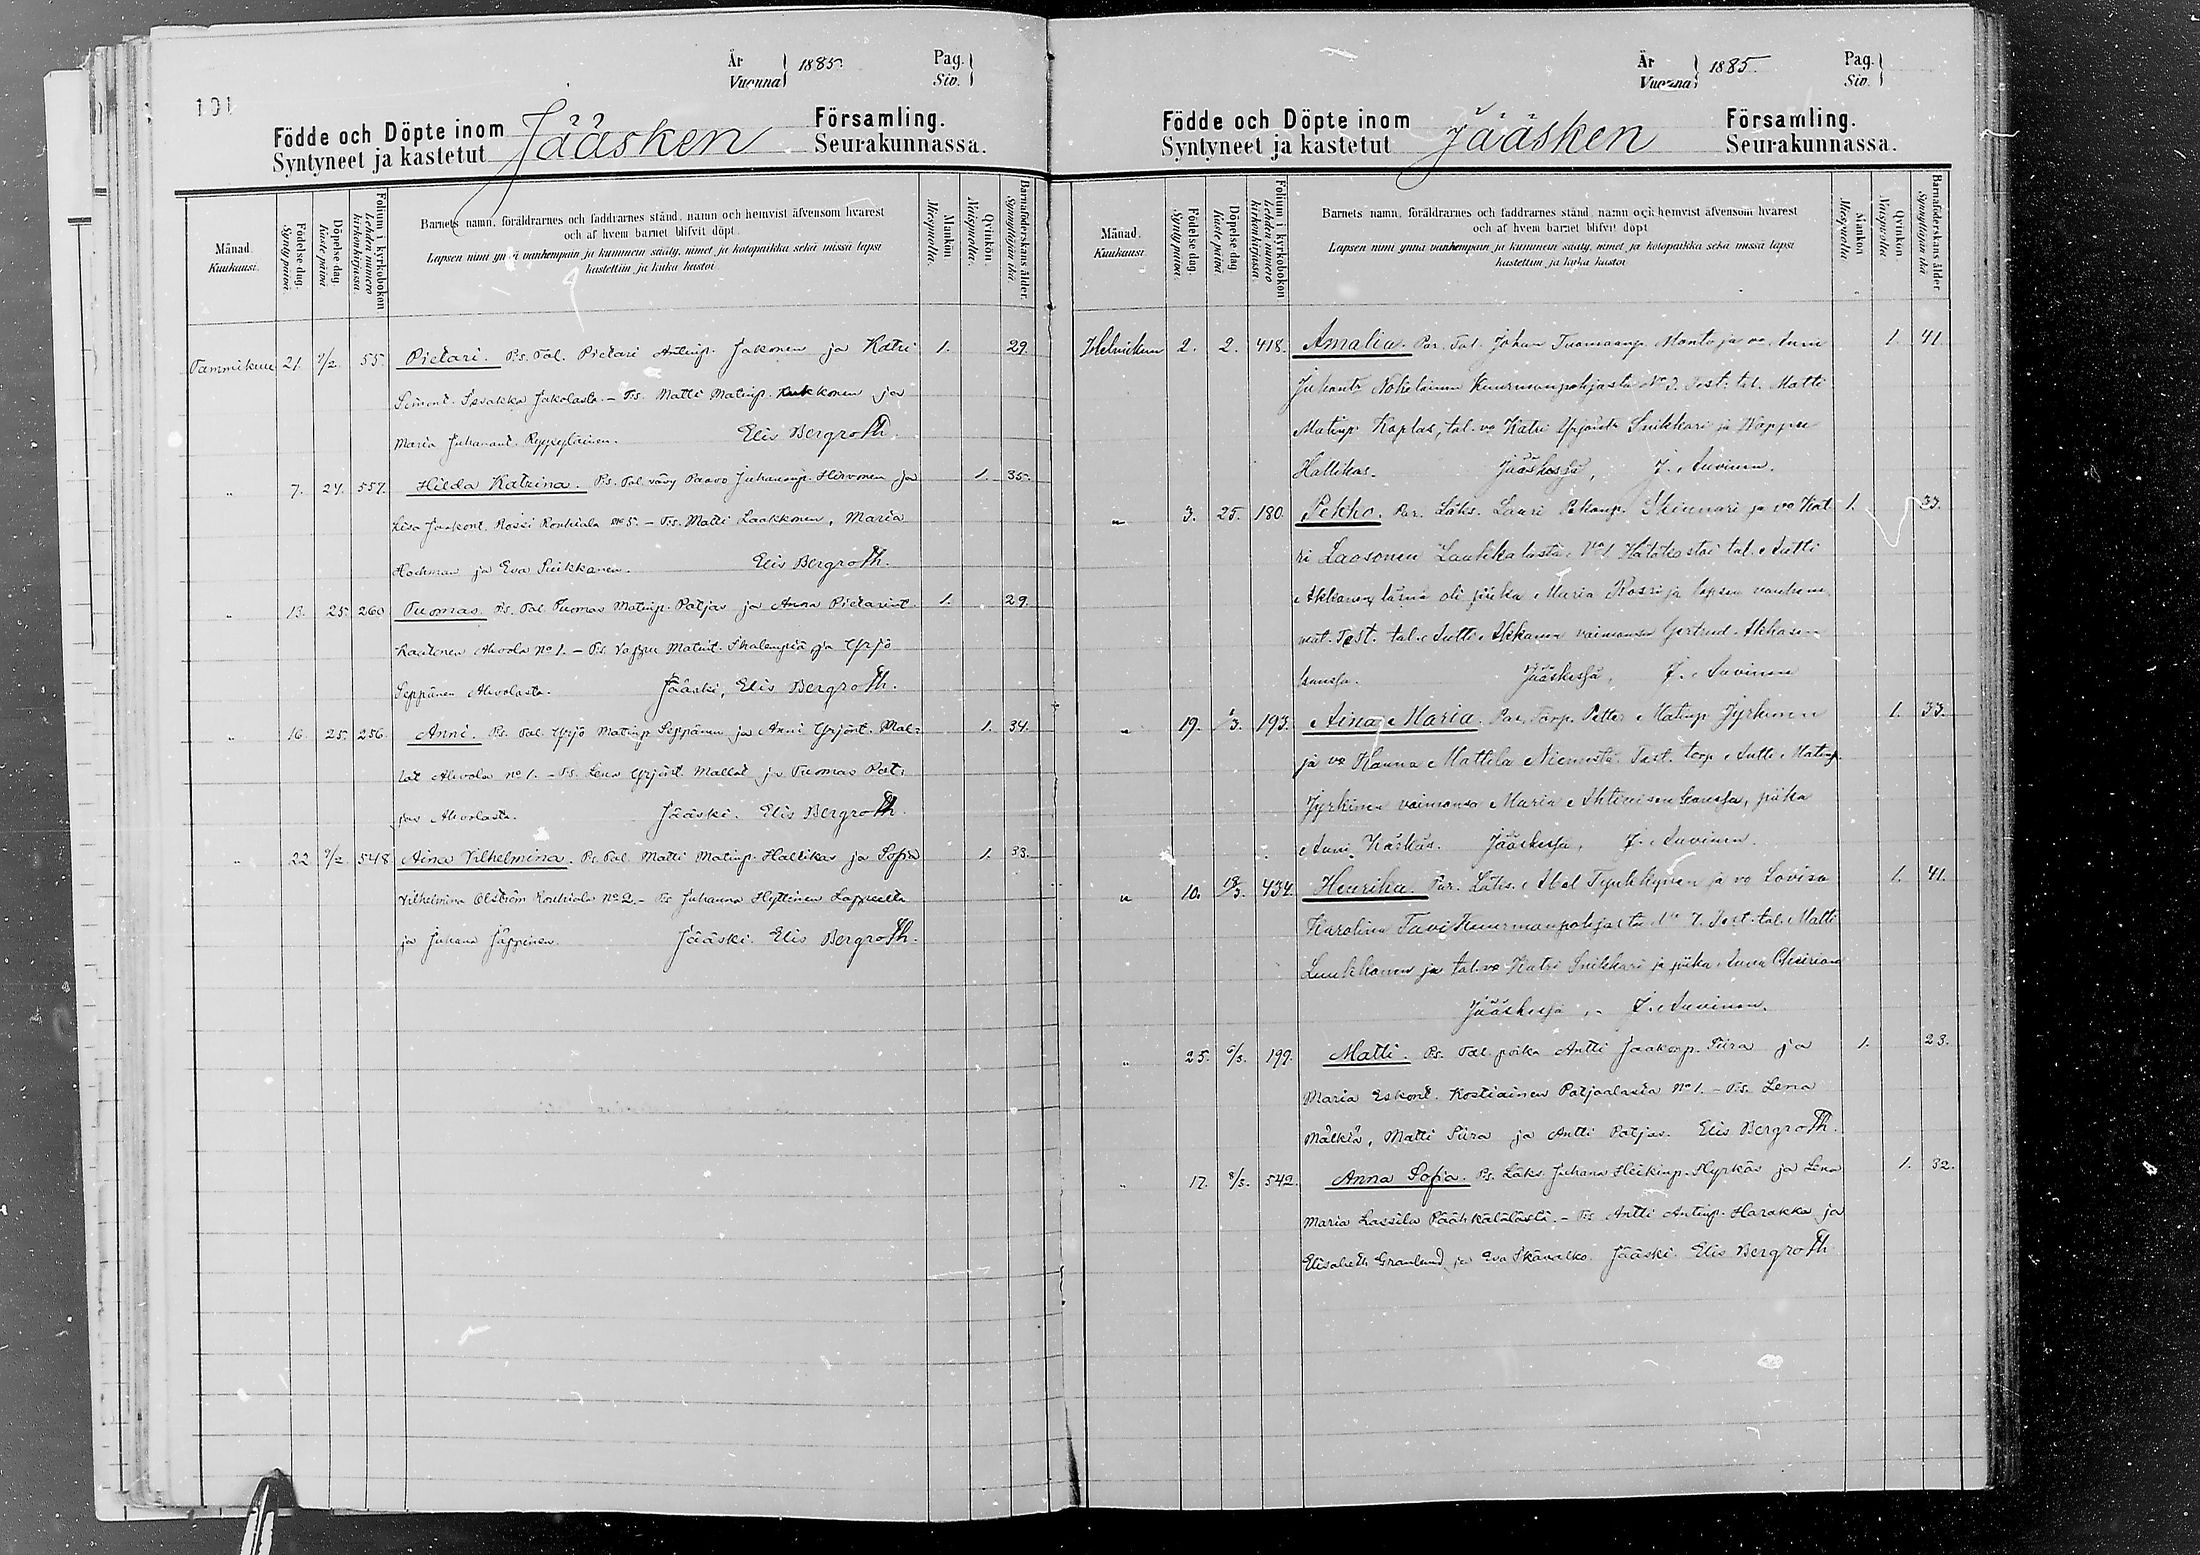 101
År
Vuonna
1885.
Pag.
Siv.
Födde och Döpte inom
Syntyneet ja kastetut
Jääsken
Församling.
Seurakunnassa.
Månad.
Kuukausi.
Födelse dag.
Synty päivä.
Döpelse dag
Kaste päivä.
Folium i kyrkoboken
Lehden numero kirkonkirjassa.
Barnets namn, föräldrarnes och faddrarnes stånd, namn och hemvist äfvensom hvarest
och af hvem barnet blifvit döpt.
Lapsen nimi ynnä vanhempain ja kummein sääty, nimet ja kotopaikka sekä missä lapsi
kastettiin ja kuka kastoi
Mankön.
Miespuolia.
Qvinkön.
Naispuolia.
Barnaföderskans ålder.
Synnyttäjän ikä.
Tammikuu 21. 1/2. 55. Pietari. Ps. Tal. Pietari Antinp. Jakonen ja Katri 1. 29.
Simont. Savakka Jakolasta. – Ts. Matti Matinp. Kukkonen ja
Maria Juhanant. Elis Bergroth.
" 7. 24. 557. Hilda Katrina. Ps. Tal. vävy Paavo Juhananp. Hirvonen ja 1. 35.
Lisa Jaakont. Rossi Ronkiala No 5. – Ts. Matti Laakkonen, Maria
Hockman ja Eva Suikkanen. Elis Bergroth.
" 13. 25. 260 Tuomas. Ps. Tal. Tuomas Matinp. Patjas ja Anna Pietarint. 1. 29.
Rautonen Ahvola No 1. – Ts. Vappu Matint. ja Yrjö
Seppänen Ahvolasta. Jääski, Elis Bergroth.
" 16. 25. 256. Anni. Ps. Tal. Yrjö Matinp. Seppänen ja Anni Yrjönt. Mal-
1. 34.
lat Ahvola No 1. – Ts. Lena Yrjönt. Mallat ja Tuomas Pat-
jas Ahvolasta. Jääski. Elis Bergroth.
" 22 9/2 548 Aina Vilhelmina. Ps. Tal. Matti Matinp. Hallikas ja Sofia 1. 33.
Vilhelmina Olström Ronkiala No 2. – Ts. Juhanna Hyttinen
ja Juhana Jäppinen. Jääski. Elis Bergroth.
År
Vuonna
1885.
Pag.
Siv.
Födde och Döpte inom
Syntyneet ja kastetut
Jääsken
Församling.
Seurakunnassa.
Månad.
Kuukausi.
Födelse dag.
Synty päivä.
Döpelse dag
Kaste päivä.
Folium i kyrkoboken
Lehden numero kirkonkirjassa.
Barnets namn, föräldrarnes och faddrarnes stånd, namn och hemvist äfvensom hvarest
och af hvem barnet blifvit döpt
Lapsen nimi ynnä vanhempain ja kummein sääty, nimet ja kotopaikka sekä missä lapsi
kastettiin ja kuka kastoi
Mankön
Miespuolia.
Qvinkön.
Naispuolia
Barnaföderskans ålder.
Synnyttäjän ikä
Helmikuu 2. 2. 418. Amalia. Par. Tal. Johan Tuomaanp. Monto ja vo Anni 1. 41.
Juhant. Kuurmanpohjasta No 3. Test. tal. Matti
Matinp. Kaplas, tal. vo Katri Yrjönt. Snikkari ja Wappu
Hallikas. Jääskessä, J. Auvinen.
" 3. 25. 180. Pekko. Par. Läks. Lauri Pekanp. Skinnari ja vo Kat- 1. 33.
ri Laasonen Laukkalasta No 1 Hätäkastoi tal. Antti
Akkanen, läsnä oli piika Maria Rossi ja lapsen vanhem-
mat. Test. tal. Antti Akkanen vaimonsa Gertrud Akkasen
kanssa. Jääskessä, J. Auvinen
" 19. 1/3. 193. Aina Maria. Par. Torp. Petter Matinp. Jyrkinen 1. 33.
ja vo Hanna Mattila Niemistä. Test. torp. Antti Matinp.
Jyrkinen vaimonsa Maria Ahtiaisen kanssa, piika
Anni Kärkäs. Jääskessä, J. Auvinen.
" 10. 18/3. 434. Henrika. Par. Läks. Abel Tynkkynen ja vo Lovisa 1. 41.
Karolina Tavi Kuurmanpohjasta No 7. Test. tal. Matti
Luukkanen ja tal. vo Katri Snikkari ja piika Anna
Jääskessä, J. Auvinen.
" 25. 6/3. 199. Matti. Ps. Tal. poika Antti Jaakonp. Siira ja 1. 23.
Maria Eskont. Kostiainen Patjaalasta No 1. – Ts. Lena
Mälkiä, Matti Siira ja Antti Patjas. Elis Bergroth.
" 17. 8/3. 542. Anna Sofia. Ps. Läks. Juhana Heikinp. Hyrkäs ja Lena 1. 32.
Maria Lassila Päähkälälästä. – Ts. Antti Antinp. Harakka ja
Elisabeth Granlund ja Eva Skävalko. Jääski. Elis Bergroth